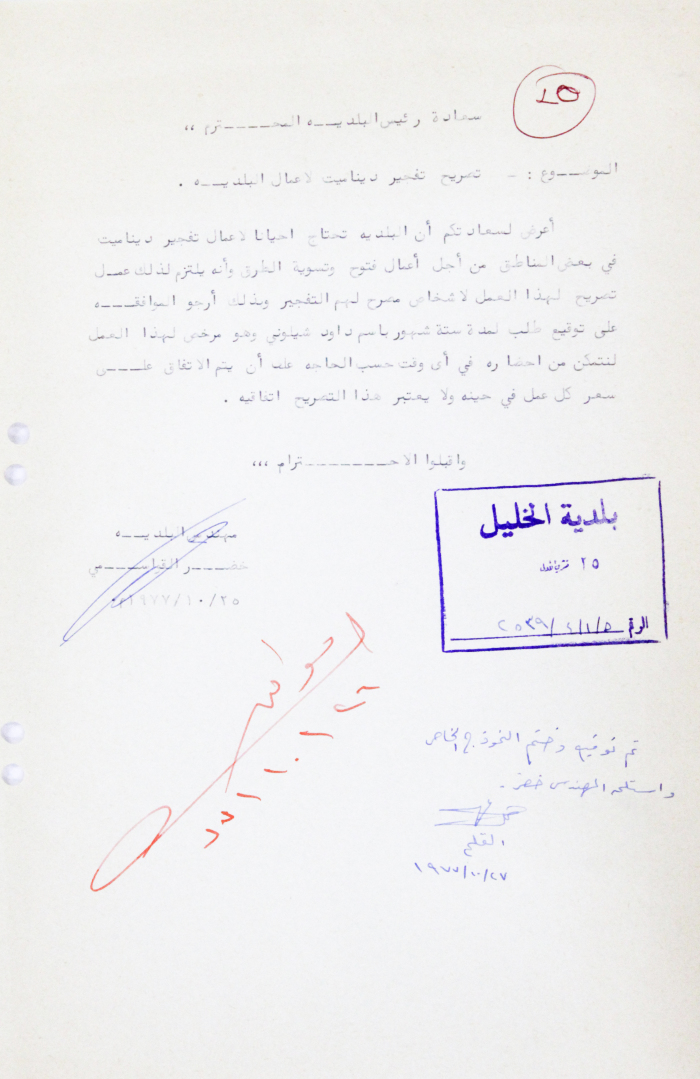 سعادة رئيس البلديـــه المحــــــترم ،،
الموضــوع : ـ تصريح تفجير ديناميت لاعمال البلديـــه .
أعرض لسعادتكم أن البلديه تحتاج احيانا لاعمال تفجير ديناميت
في بعض المناطق من أجل أعمال فتوح وتسوية الطرق وأنه يلتزم لذلك عمـل
تصريح لهذا العمل لاشخاص مصرح لهم التفجير وبذلك أرجو الموافقـــه
على توقيع طلب لمدة ستة شهور باسم داود شيلوني وهو مرخص لهذا العمل
لنتمكن من احضاره في أى وقت حسب الحاجه علما أن يتم الاتفاق علـــى
سعر كل عمل في حينه ولا يعتبر هذا التصريح اتفاقيه .
واقبلوا الاحــــــــترام ،،،
مهندس البلديـــه
خضـــر القواســـمي
١٩٧٧/١٠/٢٥
بلدية الخليل
٢٥
الرقم ٢٥٣٩/٤/١/٥
اوافق
تم توقيع وختم النموذج الخاص
واستلمه المهندس خضر .
القلم
١٩٧٧/١٠/٢٧